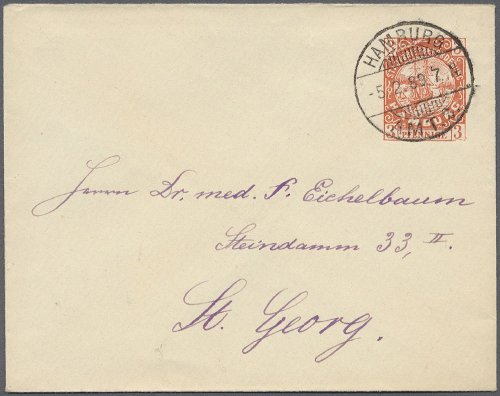 HAMBURG
AMT 3
3 PFENNIGE 3
Herrn Dr. med. F. Eichelbaum
Steindamm 33, II.
St. Georg.